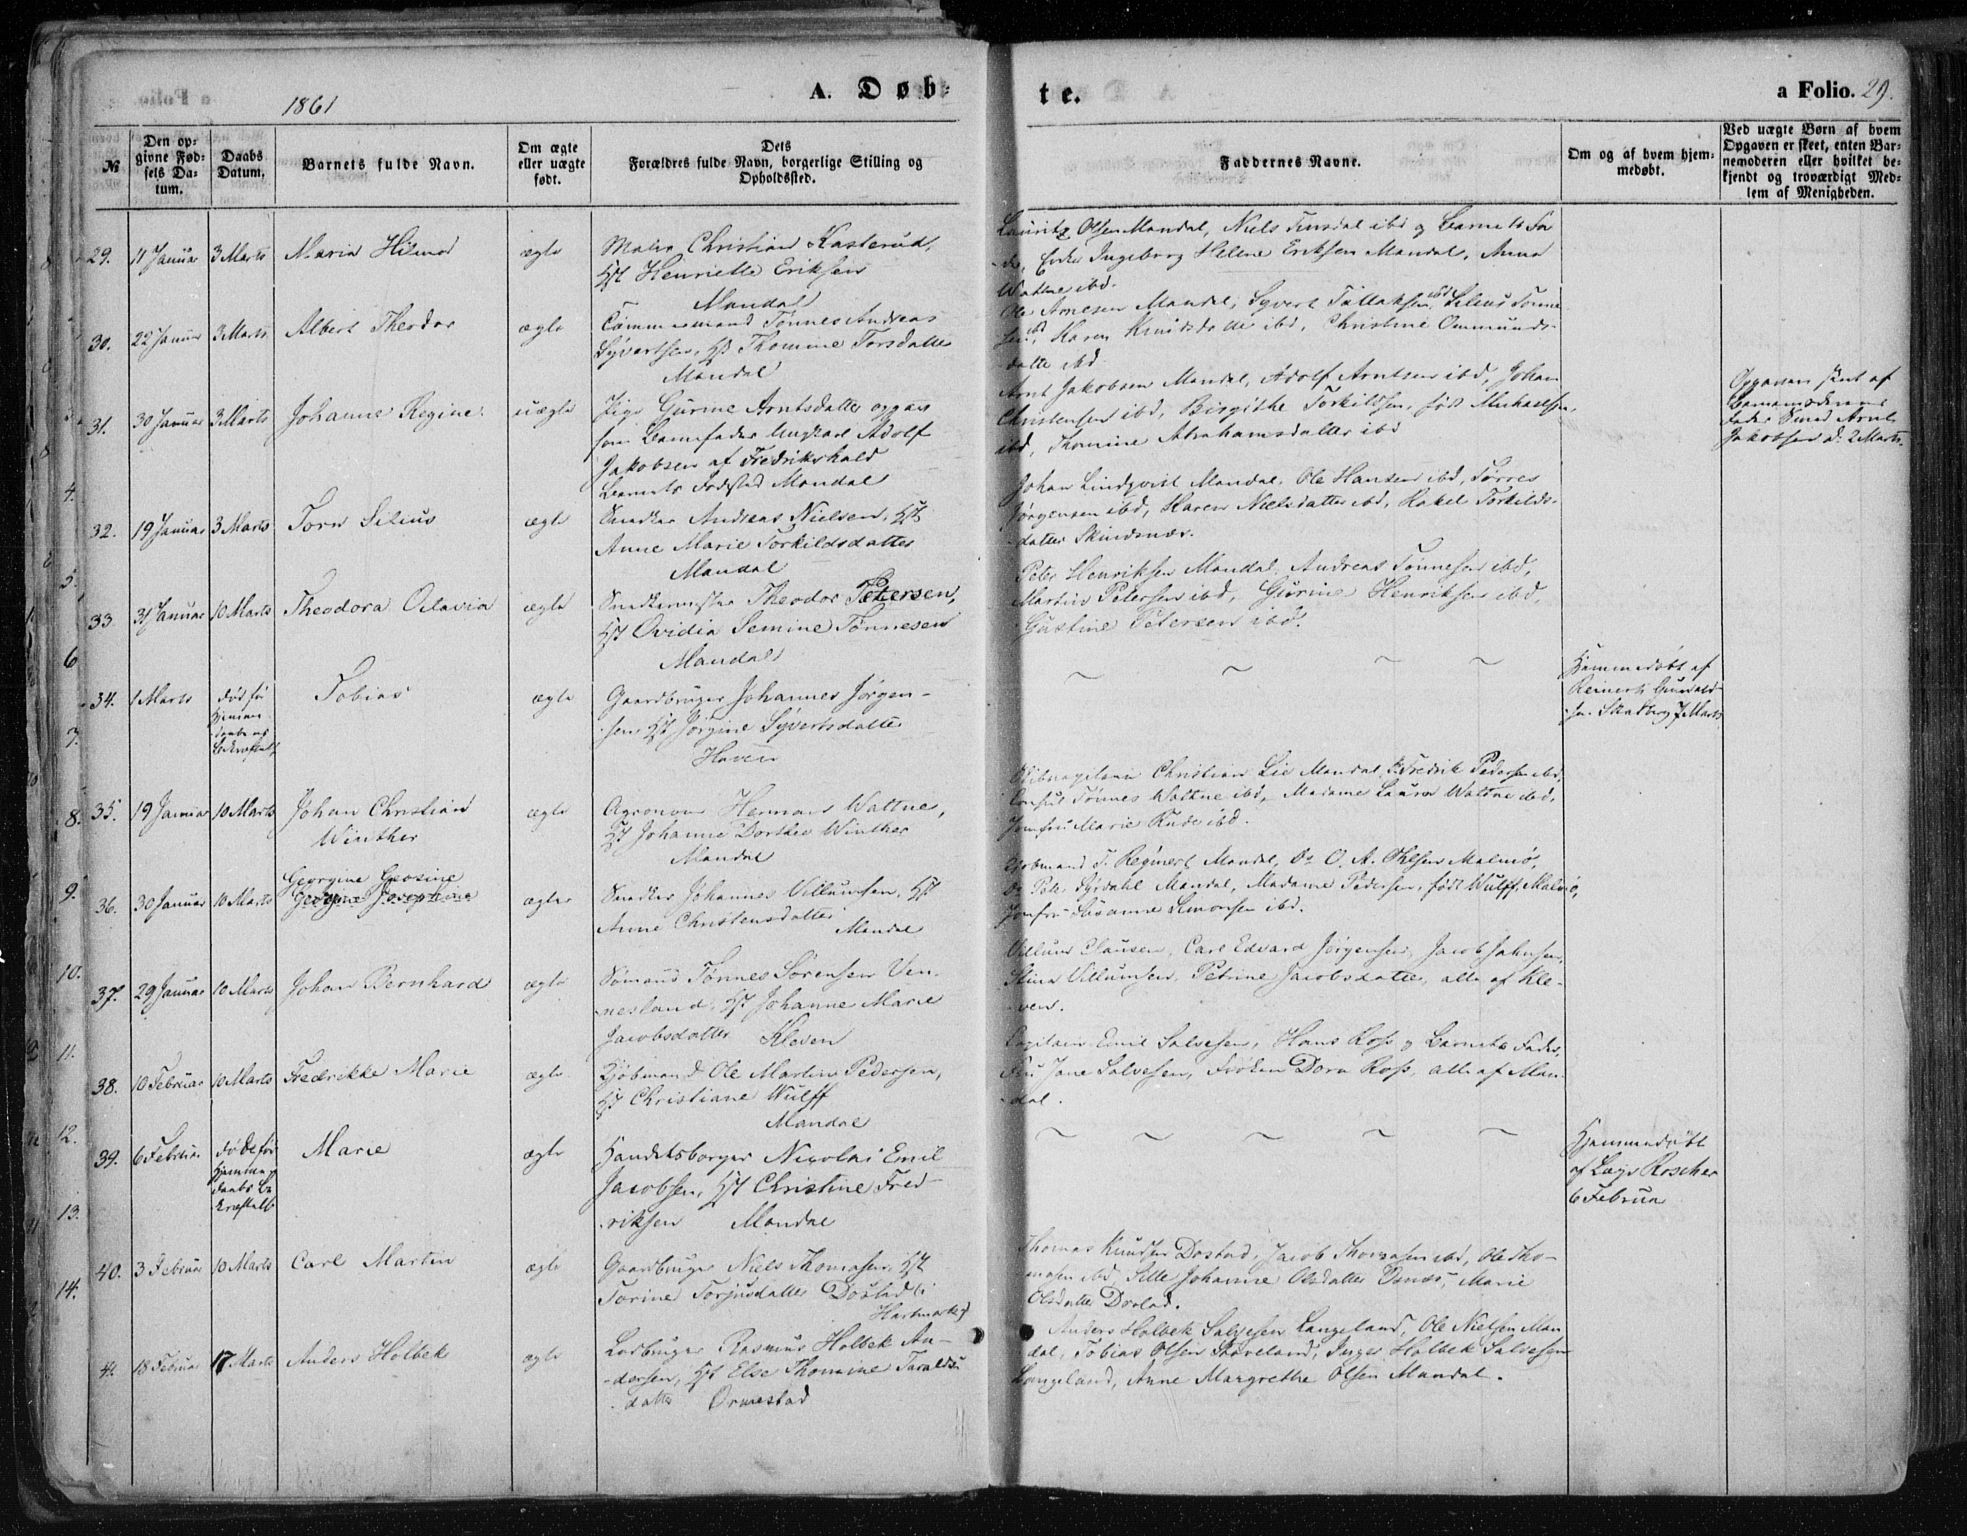 1861
A. Døb-
te.
a Folio. 29.
№
Den op-
givne Fød-
sels Da-
tum.
Daabs
Datum.
Barnets fulde Navn.
Om ægte
eller uægte
født.
Dets
Forældres fulde Navn, borgerlige Stilling og
Opholdssted.
Faddernes Navne.
Om og af hvem hjem-
medøbt.
Ved uægte Børn af hvem
Opgaven er skeet, enten Bar-
nemoderen eller hvilket be-
kjendt og troværdigt Med-
lem af Menigheden.
29. 11 Januar 3 Marts Maria ægte
Maler Christian Kasterud,
Hst Henriette Eriksen
Mandal
Lauritz Olsen Mandal, Niels ibd og Barnets Fa
der, Enke Ingeborg Helene Eriksen Mandal, Anna
Wattne ibd.
30. 22 Januar 3 Marts Albert Theodor ægte
Tømmermand Tønnes Andreas
Syvertsen, Hst Thomine Torsdatter
Mandal
Ole Arnesen Mandal, Syvert Tallaksen ibd, Silius Tønne
sen ibd, Karen Knudsdatte ibd, Christine Ommunds-
datte ibd
31. 30 Januar 3 Marts Johanne Regine uægte
Pige Gurine Arntsdatter opgav
som Barnefader Ungkarl Adolf
Jakobsen af Fredrikshald
Barnets Fødested Mandal
Arnt Jakobsen Mandal, Adolf Arntsen ibd, Johan
Christensen ibd, Birgithe Torkildsen, født Michaelsen,
ibd, Thomine Abrahamsdatter ibd
Opgaven skeet af
Barnemoderens
Fader Smed Arnt
Jakobsen d. 2 Marts.
32. 19 Januar 3 Marts Torn Silius ægte
Snedker Andreas Nielsen, Hst
Anne Marie Torkildsdatter
Mandal
Johan Lindqvist Mandal, Ole Hansen ibd, Tørres
Jørgensen ibd, Karen Nielsdatter ibd, Rakel Torkilds-
datter Skindsnæs.
33. 31 Januar 10 Marts Theodora Octavia ægte
Snedkermester Theodor Petersen,
Hst Ovidia Semine Tønnesen
Mandal
Peter Henriksen Mandal, Andreas Tønnesen ibd,
Martin Petersen ibd, Gurine Henriksen ibd,
Gustine Petersen ibd.
34. 1 Marts død før
Hjemme
daabens
Bekræftelse
Tobias ægte
Gaardbruger Johannes Jørgen-
sen Hst Jørgine Syvertsdatte
Haven
~ ~ ~ ~
Hjemmedøbt af
Reinert
sen 7 Marts
35. 19 Januar 10 Marts Johan Christian
Winther
ægte
Agronom Herman Wattne,
Hst Johanne Dorthea Winther
Mandal
Christian Lie Mandal, Fredrik Pedersen ibd,
Consul Tønnes Wattne ibd, Madame Laura Wattne ibd,
Jomfru Marie ibd.
36. 30 Januar 10 Marts Georgine Gerosine
Georgine Josephine
ægte
Snedker Johannes Villumsen, Hst
Anne Christensdatter
Mandal
Kjøbmand T. Reginert Mandal, O. A. Olsen Malmø,
Syrdahl Mandal, Madame Pedersen, født Wulff, Malmø,
Jomfru Susanne Simonsen ibd.
37. 29 Januar 10 Marts Johan Bernhard ægte
Sømand Tønnes Sørensen Ven-
nesland, Hst Johanne Marie
Jacobsdatter Kleven
Villum Clausen, Carl Edvard Jørgensen, Jacob Jahnsen,
Stina Villumsen, Petrine Jacobsdatter, alle af Kle-
ven.
38. 10 Februar 10 Marts Fredrikke Marie ægte
Kjøbmand Ole Martin Pedersen,
Hst Christiane Wulff
Mandal
Capitain Emil Salvesen, Hans Ross og Barnets Fader,
Fru Jane Salvesen, Frøken Dora Ross, alle af Man-
dal.
39. 6 Februar døde før
Hjemme
daabs Be
kræftelse
Marie ægte
Handelsborger Nicolai Emil
Jacobsen, Hst Christine Fred-
riksen Mandal
~ ~ ~ ~ ~
Hjemmedøbt
af Læge Roscher
6 Februar
40. 3 Februar 10 Marts Carl Martin ægte
Gaardbruger Niels Thomasen, Hst
Torine Torjusdatter Døstad (i
Hartmark)
Thomas Knudsen Døstad, Jacob Thomasen ibd, Ole Tho-
masen ibd, Sille Johanne Olsdatter, Marie
Olsdatter Døstad.
41. 18 Februar 17 Marts Anders Holbek ægte
Losbruger Rasmus Holbek An-
dersen, Hst Else Thomine Taralds-
datter Ormestad
Anders Holbek Salvesen Langeland, Ole Nielsen Man
dal, Tobias Olsen Støveland, Inger Holbek Salvesen
Langeland, Anne Margrethe Olsen Mandal.
4.
5.
6
7.
8.
9.
10.
11.
12.
13.
14.